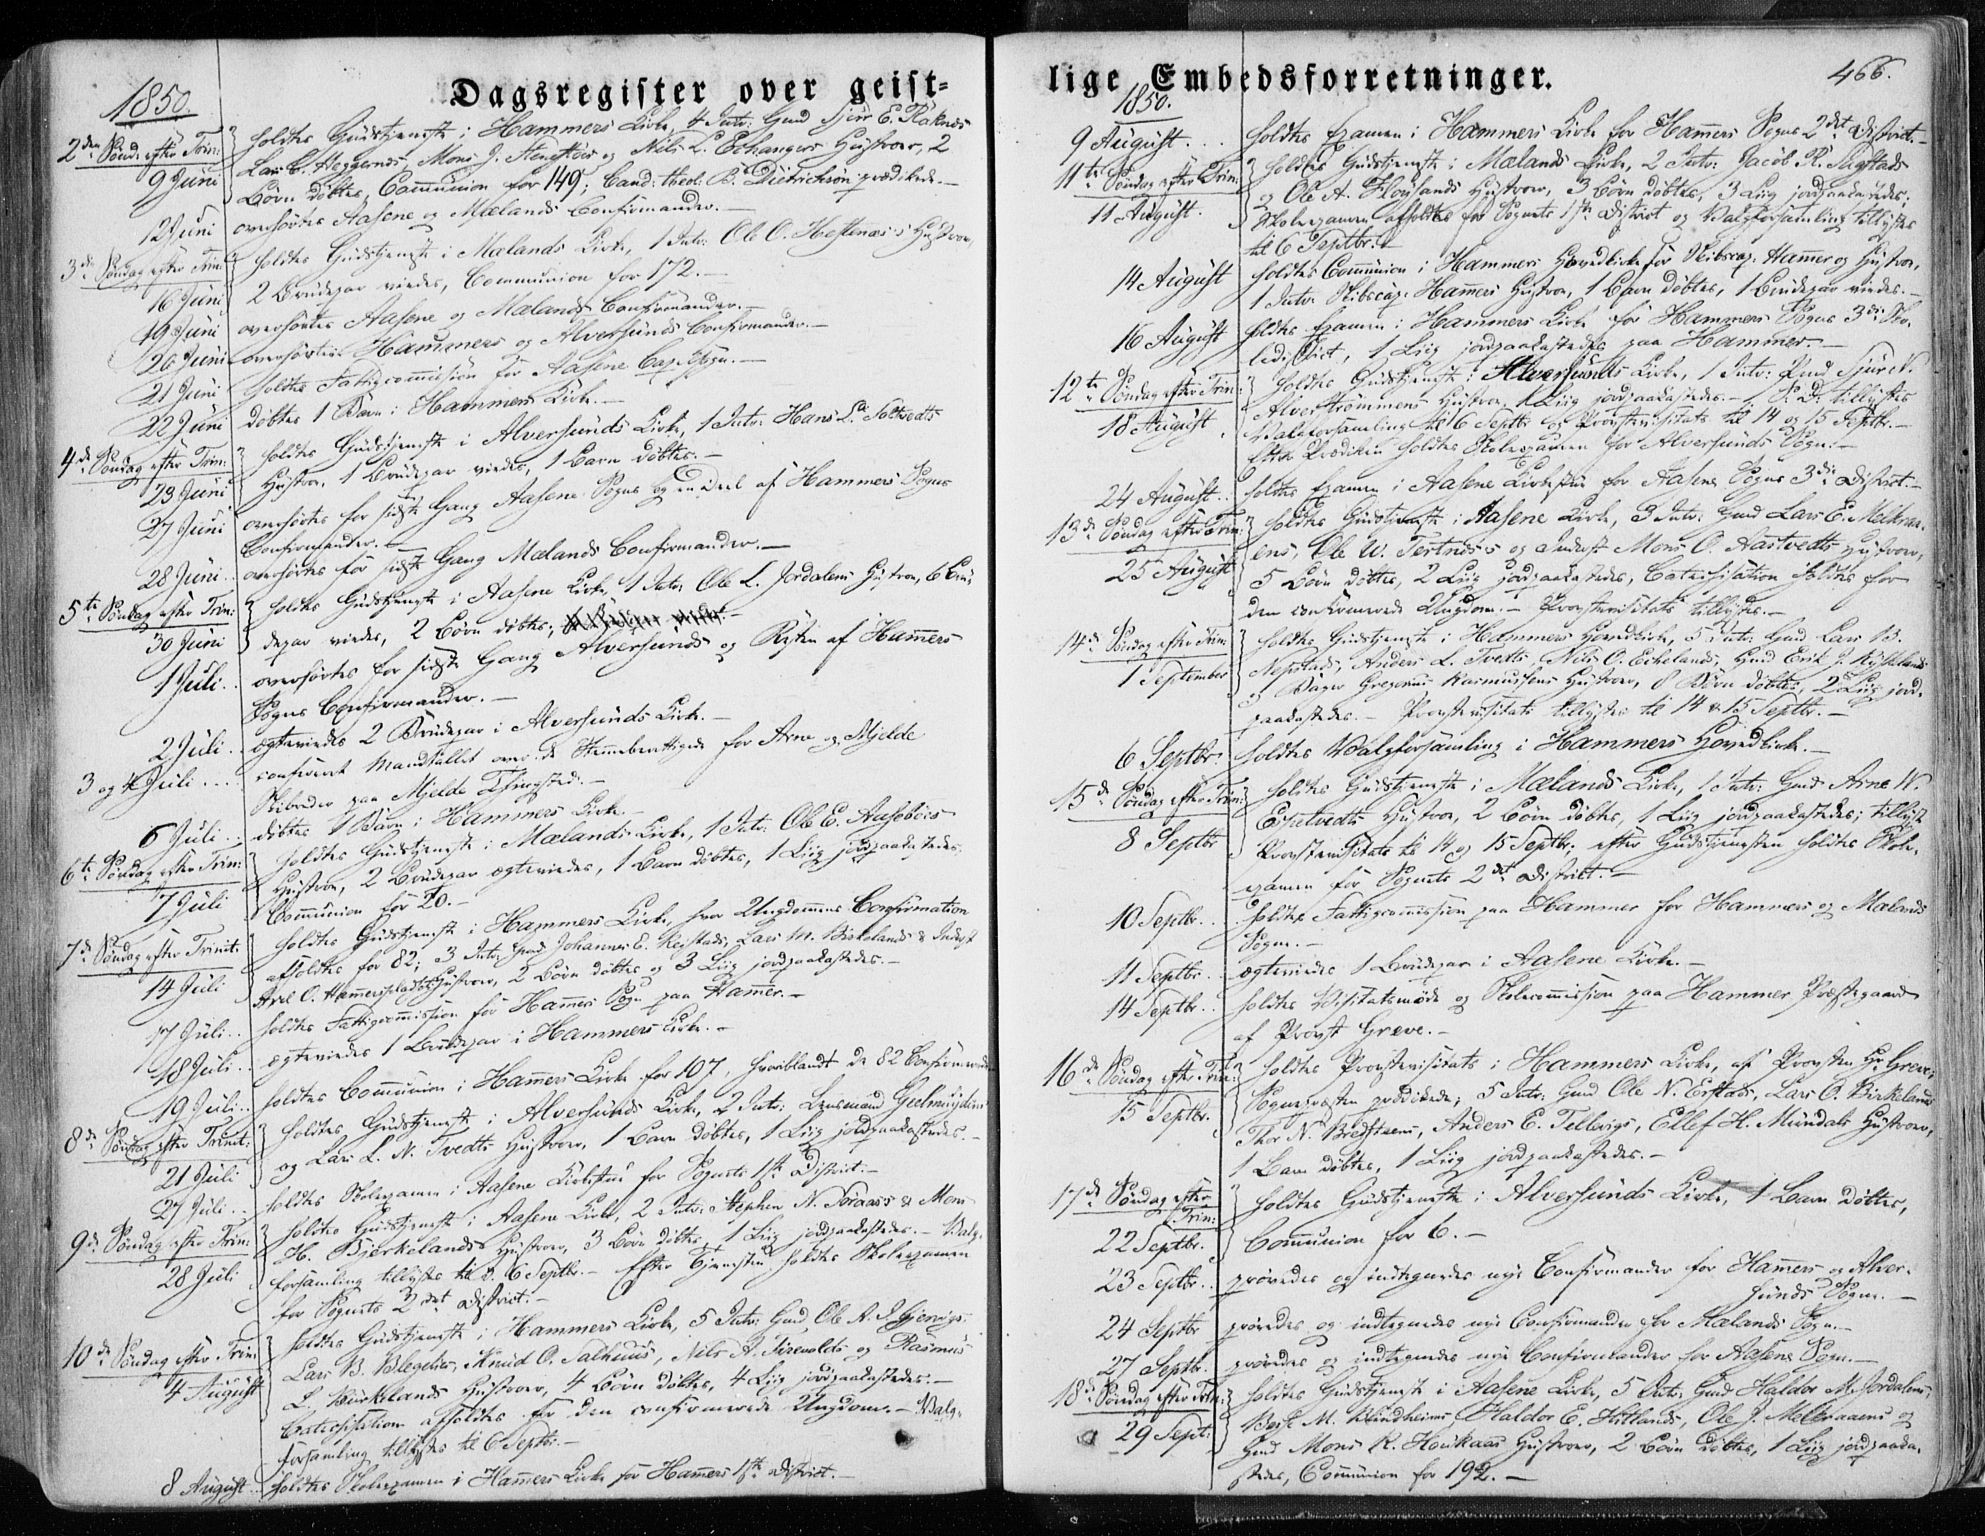 1850.
Dagsregister over geist-
2den Sønd: efter Trin: holdtes Gudstjeneste i Hammers Kirke, 4 Intr: Gmd Sjur E. Röknes
Lars C. Heggernes, Mons J. Steneslöes og Nils L. Echangers Hustroer, 2
9 Juni Börn döbtes, Communion for 149; Cand: theol: B. Dietrichson prædikede.–
12 Juni overhörtes Aasene og Mælands Confirmander.–
3die Söndag efter Trin: holdtes Gudstjeneste i Mælands Kirke, 1 Intr: Ole O. Hestenæs's Hustroe,
16 Juni 2 Brudepar viedes, Communion for 172.–
19 Juni overhörtes Aasene og Mælands Confirmander.–
20 Juni overhörtes Hammers og Alversunds Confirmander.–
21 Juni holdtes Fattigcommission for Aasene Cap. Sogn.–
22 Juni döbtes 1 Barn i Hammers Kirke.–
4de Söndag efter Trin: holdtes Gudstjeneste i Alversunds Kirke, 1 Intr: Hans L. Toltvedts
23 Juni Hustroe, 1 Brudepar viedes, 1 Barn döbtes.–
27 Juni overhörtes for sidste Gang Aasene Sogns og en Deel af Hammers Sogns
Confirmander.–
28 Juni.. overhörtes for sidste Gang Mælands Confirmander.–
5te Söndag efter Trin: holdtes Gudstjeneste i Aasene Kirke, 1 Intr: Ole L. Jordalens Hustroe, 6 Bru-
30 Juni depar viedes, 2 Börn döbtes,
1 Juli.. overhörtes for sidste Gang Alversunds og Resten af Hammers
Sogns Confirmander.–
2 Juli.. ægteviedes 2 Brudepar i Alversunds Kirke.–
3 og 4 Juli.... confereret Mandtallet over de Stemmeberettigede for Arne og Mjelde
Skibreder paa Mjelde Thingsted.–
6 Juli.. döbtes 1 Barn i Hammers Kirke.–
6te Söndag efter Trin: holdtes Gudstjeneste i Mælands Kirke, 1 Intr: Ole E. Austebös
7 Juli Hustroe, 2 Brudepar ægteviedes, 1 Barn döbtes, 1 Liig jordpaakastedes.
Communion for 20.–
7de Söndag efter Trinit: holdtes Gudstjeneste i Hammers Kirke, hvor Ungdommens Confirmation
14 Juli afholdtes for 82; 3 Intr: Gmd Johannes E. Rejstads, Lars M. Birkelands & Inderst
Axel O. Hammerspladsets Hustroer, 2 Börn döbtes og 3 Liig jordpaakastedes.–
17 Juli.. holdtes Fattigcommission for Hammers Sogn paa Hammer.–
18 Juli.. ægteviedes 1 Brudepar i Hammers Kirke.–
19 Juli.. holdtes Communion i Hammers Kirke for 107, hvoriblandt de 82 Confirmerede
8de Söndag efter Trinit: holdtes Gudstjeneste i Alversunds Kirke, 2 Intr: Lensmand Gjelmuydens
21 Juli og Lars L. N. Tvedts Hustroer, 1 Barn döbtes, 1 Liig jordpaakastedes.–
27 Juli.. holdtes Skoleexamen i Aasene Kirkestue for Sognets 1ste District.–
9de Söndag efter Trin: holdtes Gudstjeneste i Aasene Kirke, 2 Intr: Stephen N. & Mons
28 Juli H. Bjerkelands Hustroer, 3 Börn döbtes, 1 Liig jordpaakastedes.– Valg-
forsamling tillystes til d. 6 Septbr.– Efter Tjenesten holdtes Skoleexamen
for Sognets 2det District.–
10de Söndag efter Trin: holdtes Gudstjeneste i Hammers Kirke, 5 Intr: Gmd Ole A. Gjervigs
4 August Lars B. Blegelies, Knud O. Salhuus, Nils A. Tirevolds og Rasmus
L. Birkelands Hustroer, 4 Börn döbtes, 4 Liig jordpaakastedes.–
Catechisation afholdtes for den confirmerede Ungdom.– Valg-
forsamling tillystes til 6 Septbr.–
8 August.. holdtes Skoleexamen i Hammers Kirke for Hammers 1ste District.–
lige Embedsforretninger.
466.
1850.
9 August... holdtes Examen i Hammers Kirke for Hammers Sogns 2det District.–
11te Söndag efter Trin: holdtes Gudstjeneste i Mælands Kirke, 2 Intr: Jacob R. Sagstads
11 August. og Ole A. Flöysands Hustroer, 3 Börn döbtes, 3 Liig jordpaakastedes;
Skoleexamen afholdtes for Sognets 1ste District og Valgforsamling tillystes
til 6 Septbr.
14 August holdtes Communion i Hammers Hovedkirke for Skibscap. Hammer og Hustroe,
1 Intr: Skibscap: Hammers Hustroe, 1 Barn döbtes, 1 Brudepar viedes.–
16 August holdtes Examen i Hammers Kirke for Hammers Sogns 3die Sko-
ledistrict, 1 Liig jordpaakastedes paa Hammer.–
12te Söndag efter Trin: holdtes Gudstjeneste i Alversunds Kirke, 1 Intr: Sjur N.
18 August. Alverströmmens Hustroe, 1 Liig jordpaakastedes.– S. D. tillystes
Valgforsamling til 6 Septbr og Provstevisitats til 14 og 15 Septbr.–
Efter Prædiken holdtes Skoleexamen for Alversunds Sogn.–
24 August.. holdtes Examen i Aasene Kirkestue for Aasene Sogns 3die District.–
13de Söndag efter Trin: holdtes Gudstjeneste i Aasene Kirke, 3 Intr: Gmd Lars E. Meltvaa-
25 August ens, Ole W. Tertnes's og Inderst Mons O. Aastvedts Hustroer,
5 Börn döbtes, 2 Liig jordpaakastedes, Catechisation holdtes for
den confirmerede Ungdom.– Provstevisitats tillystes.–
14de Söndag efter Trin: holdtes Gudstjeneste i Hammers Hovedkirke, 5 Intr: Gmd Lars B.
1 September Nepstads, Anders L. Tvedts, Nils O. Echelands, Gmd Erik J. Rysselands
og Bager Gregorius Rasmussens Hustroer, 8 Börn döbtes, 2 Liig jord-
paakastedes.– Provstevisitats tillystes til 14 & 15 Septbr.–
6 Septbr. holdtes Valgforsamling i Hammers Hovedkirke.–
15de Söndag efter Trin: holdtes Gudstjeneste i Mælands Kirke, 1 Intr: Gmd Arne W.
8 Septbr Espetvedts Hustroe, 2 Börn döbtes, 1 Liig jordpaakastedes; tillyst
Provstevisitats til 14 og 15 Septbr; efter Gudstjenesten holdtes Skole-
examen for Sognets 2det District.–
10 Septbr.. holdtes Fattigcommission paa Hammer for Hammers og Mælands
Sogne.–
11 Septbr.. ægteviedes 1 Brudepar i Aasene Kirke.–
14 Septbr.. holdtes Visitatsmöde og Skolecommission paa Hammer Præstegaard
af Provst Greve.–
16de Söndag efter Trin: holdtes Provstevisitats i Hammers Kirke, af Provsten Hr Greve;
15 Septbr. Sognepræsten prædikede; 5 Intr: Gmd Ole N. Erstads, Lars O. Birkelands
Thor N. Bredsteens, Anders E. Tellevigs, Ellef H. Mundals Hustroer,
1 Barn döbtes, 1 Liig jordpaakastedes.–
17de Söndag efter Trin: holdtes Gudstjeneste i Alversunds Kirke, 1 Barn döbtes,
22 Septbr. Communion for 6.–
23 Septbr.. prövedes og indtegnedes nye Confirmander for Hammers og Alver-
sunds Sogne.–
24 Septbr prövedes og indtegnedes nye Confirmander for Mælands Sogn.–
27 Septbr. prövedes og indtegnedes nye Confirmander for Aasene Sogn.–
18de Söndag efter Trin: holdtes Gudstjeneste i Aasene Kirke, 5 Intr: Gmd Haldor M. Jordalens,
29 Sept: M. Blindheims, Haldor E. Hitlands, Ole J. Meltvaaens og
Gmd Mons K. Houkaas Hustroer, 2 Börn döbtes, 1 Liig jordpaaka-
stedes, Communion for 192.–